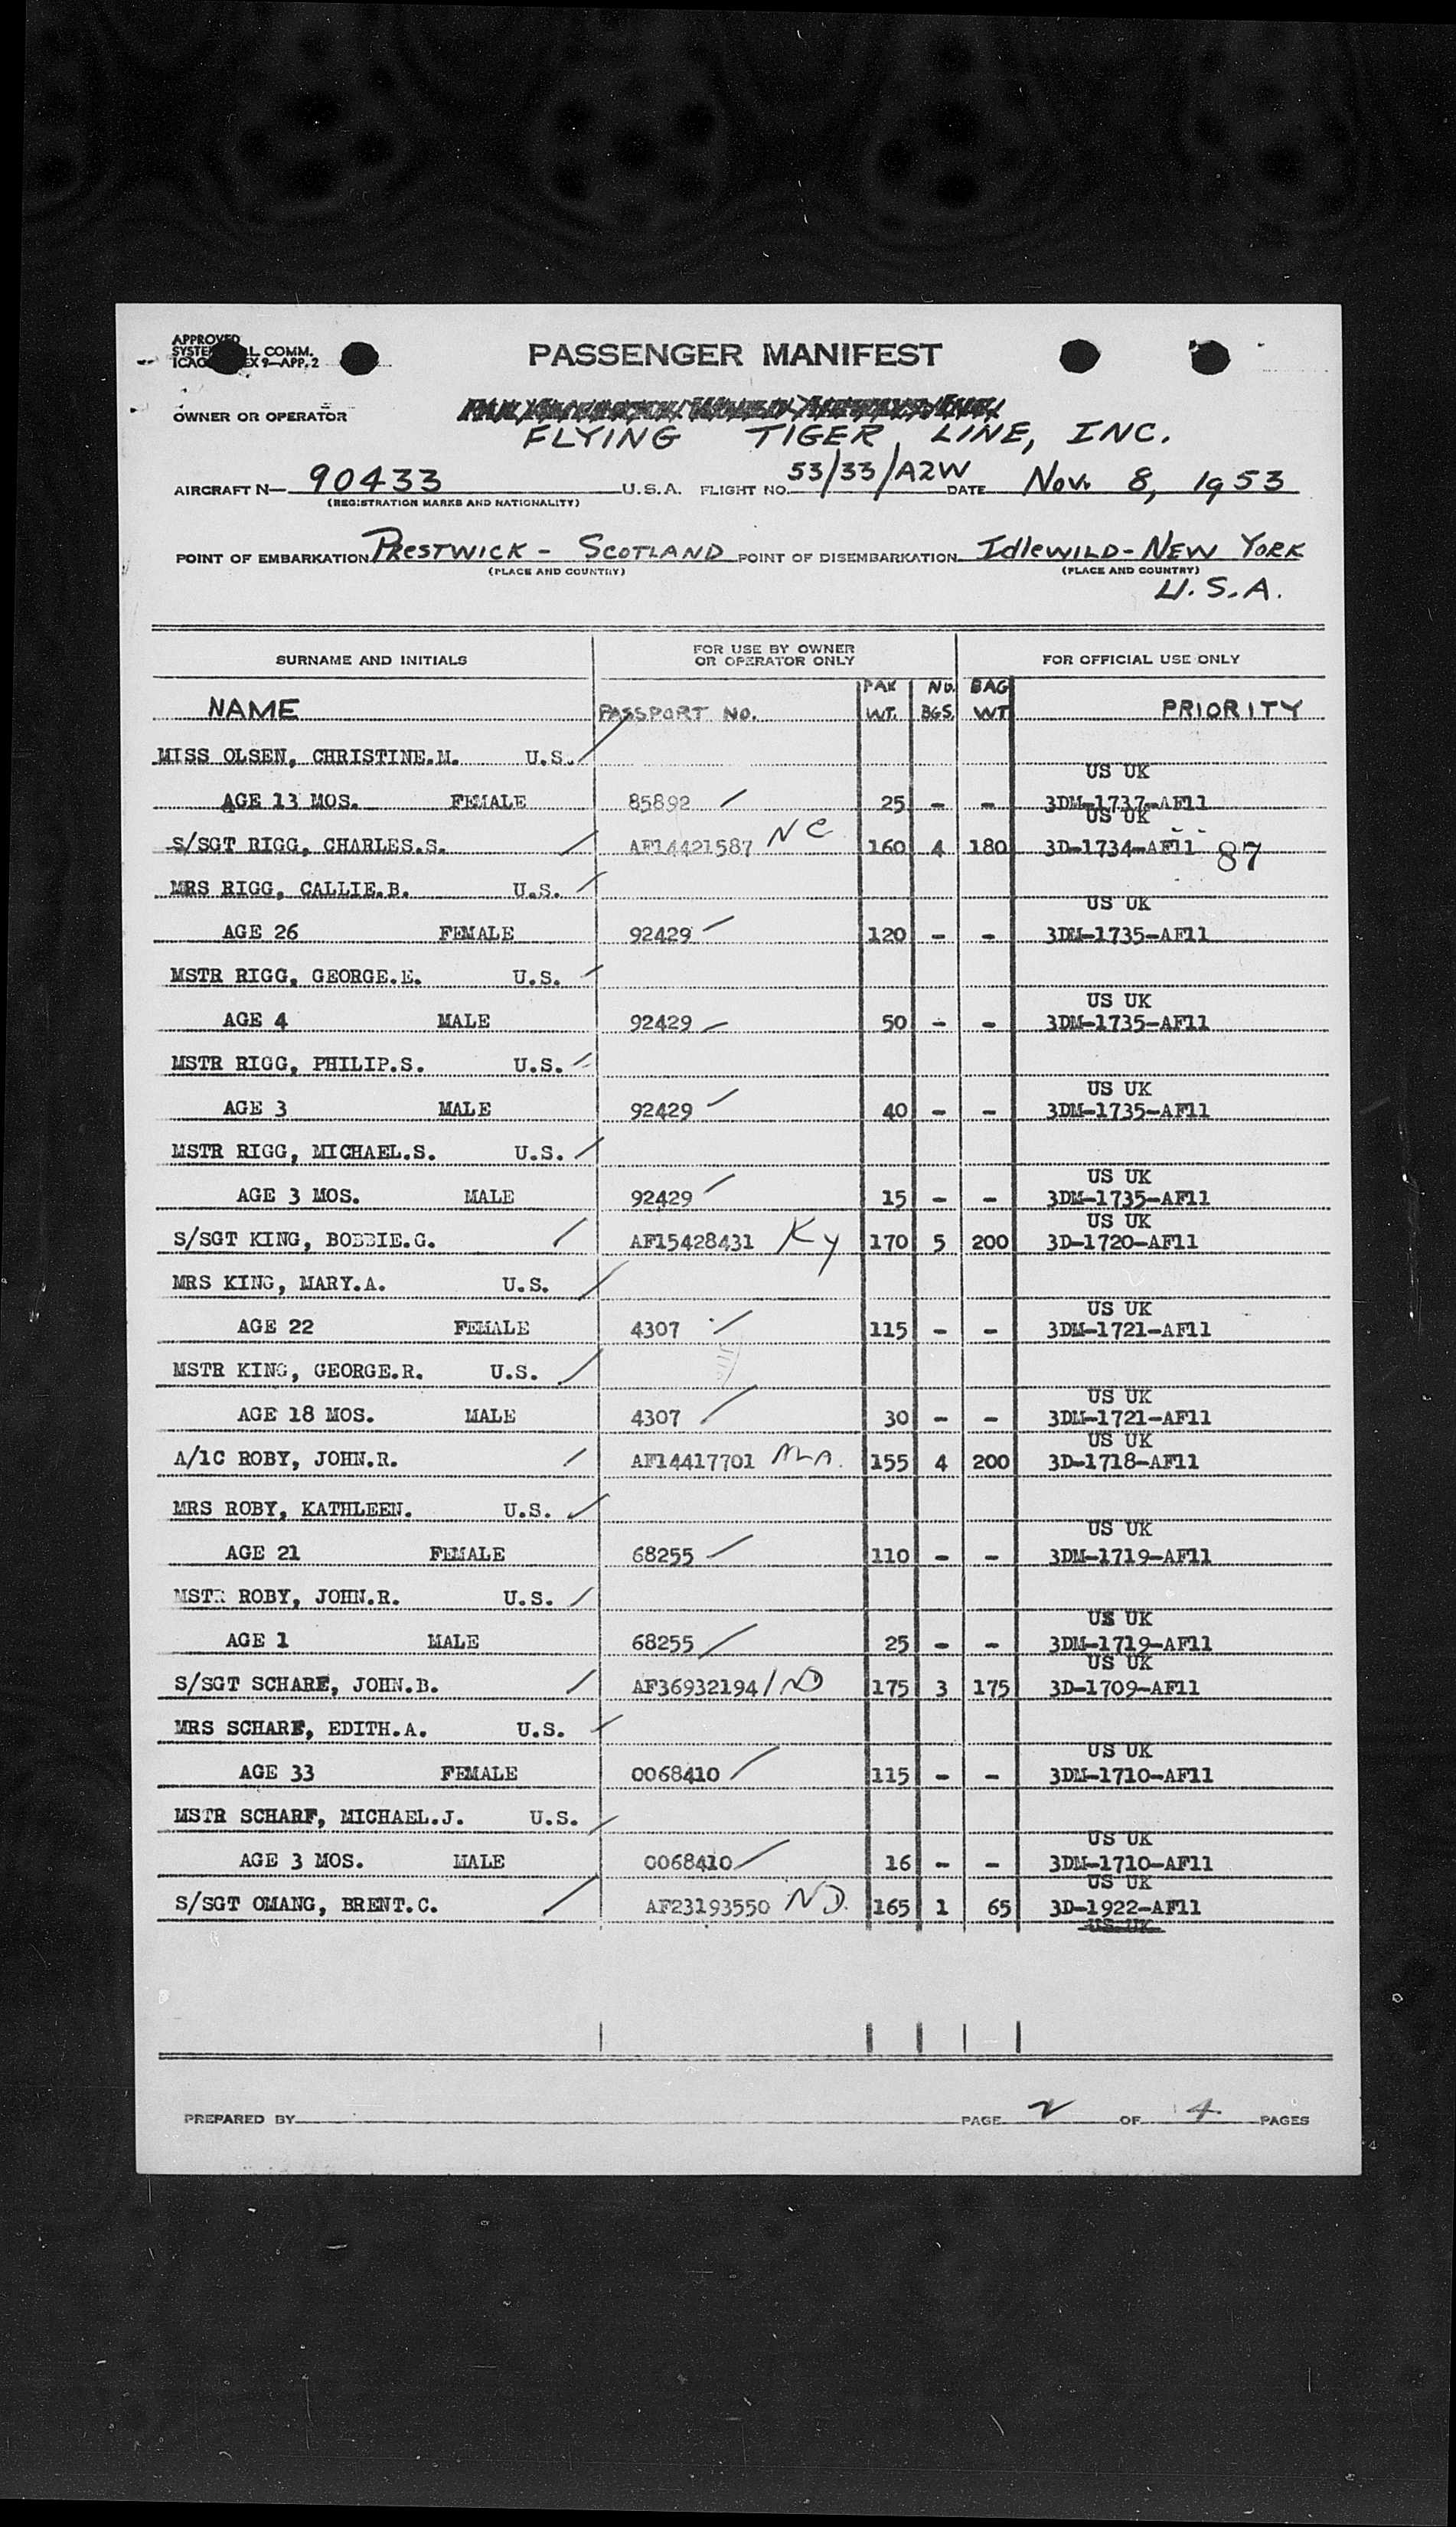 APPROVED
L. COMM.
ICAO EX 9—APP. 2
PASSENGER MANIFEST
OWNER OR OPERATOR
FLYING TIGER LINE, INC.
AIRCRAFT N— 90433 U.S.A. FLIGHT NO. 53/33/A2W DATE Nov. 8, 1953
(REGISTRATION MARKS AND NATIONALITY)
POINT OF EMBARKATION PRESTWICK - SCOTLAND POINT OF DISEMBARKATION IdlEWILD - NEW YORK
(PLACE AND COUNTRY) (PLACE AND COUNTRY)
U.S.A.
SURNAME AND INITIALS FOR USE BY OWNER OR OPERATOR ONLY FOR OFFICIAL USE ONLY
NAME PASSPORT NO. PAX WT. No. BGS. BAG WT PRIORITY
MISS OLSEN, CHRISTINE.M. U.S.
US UK
AGE 13 MOS. FEMALE 85892 25 - - 3DM-1737-AF11
US UK
S/SGT RIGG, CHARLES.S. AF14421587 NC 160 4 180 3D-1734-AF11 87
MRS RIGG, CALLIE.B. U.S.
US UK
AGE 26 FEMALE 92429 120 - - 3DM-1735-AF11
MSTR RIGG, GEORGE.E. U.S.
US UK
AGE 4 MALE 92429 50 - - 3DM-1735-AF11
MSTR RIGG, PHILIP.S. U.S.
US UK
AGE 3 MALE 92429 40 - - 3DM-1735-AF11
MSTR RIGG, MICHAEL.S. U.S.
US UK
AGE 3 MOS. MALE 92429 15 - - 3DM-1735-AF11
US UK
S/SGT KING, BOBBIE.G. AF15428431 Ky 170 5 200 3D-1720-AF11
MRS KING, MARY.A. U.S.
US UK
AGE 22 FEMALE 4307 115 - - 3DM-1721-AF11
MSTR KING, GEORGE.R. U.S.
US UK
AGE 18 MOS. MALE 4307 30 - - 3DM-1721-AF11
US UK
A/1C ROBY, JOHN.R. AF14417701 ALA. 155 4 200 3D-1718-AF11
MRS ROBY, KATHLEEN. U.S.
US UK
AGE 21 FEMALE 68255 110 - - 3DM-1719-AF11
MSTR ROBY, JOHN.R. U.S.
US UK
AGE 1 MALE 68255 25 - - 3DM-1719-AF11
US UK
S/SGT SCHARF, JOHN.B. AF36932194 / ND 175 3 175 3D-1709-AF11
MRS SCHARF, EDITH.A. U.S.
US UK
AGE 33 FEMALE 0068410 115 - - 3DM-1710-AF11
MSTR SCHARF, MICHAEL.J. U.S.
US UK
AGE 3 MOS. MALE 0068410 16 - - 3DM-1710-AF11
US UK
S/SGT OMANG, BRENT.C. AF23193550 ND. 165 1 65 3D-1922-AF11
US UK
PREPARED BY PAGE 2 OF 4 PAGES